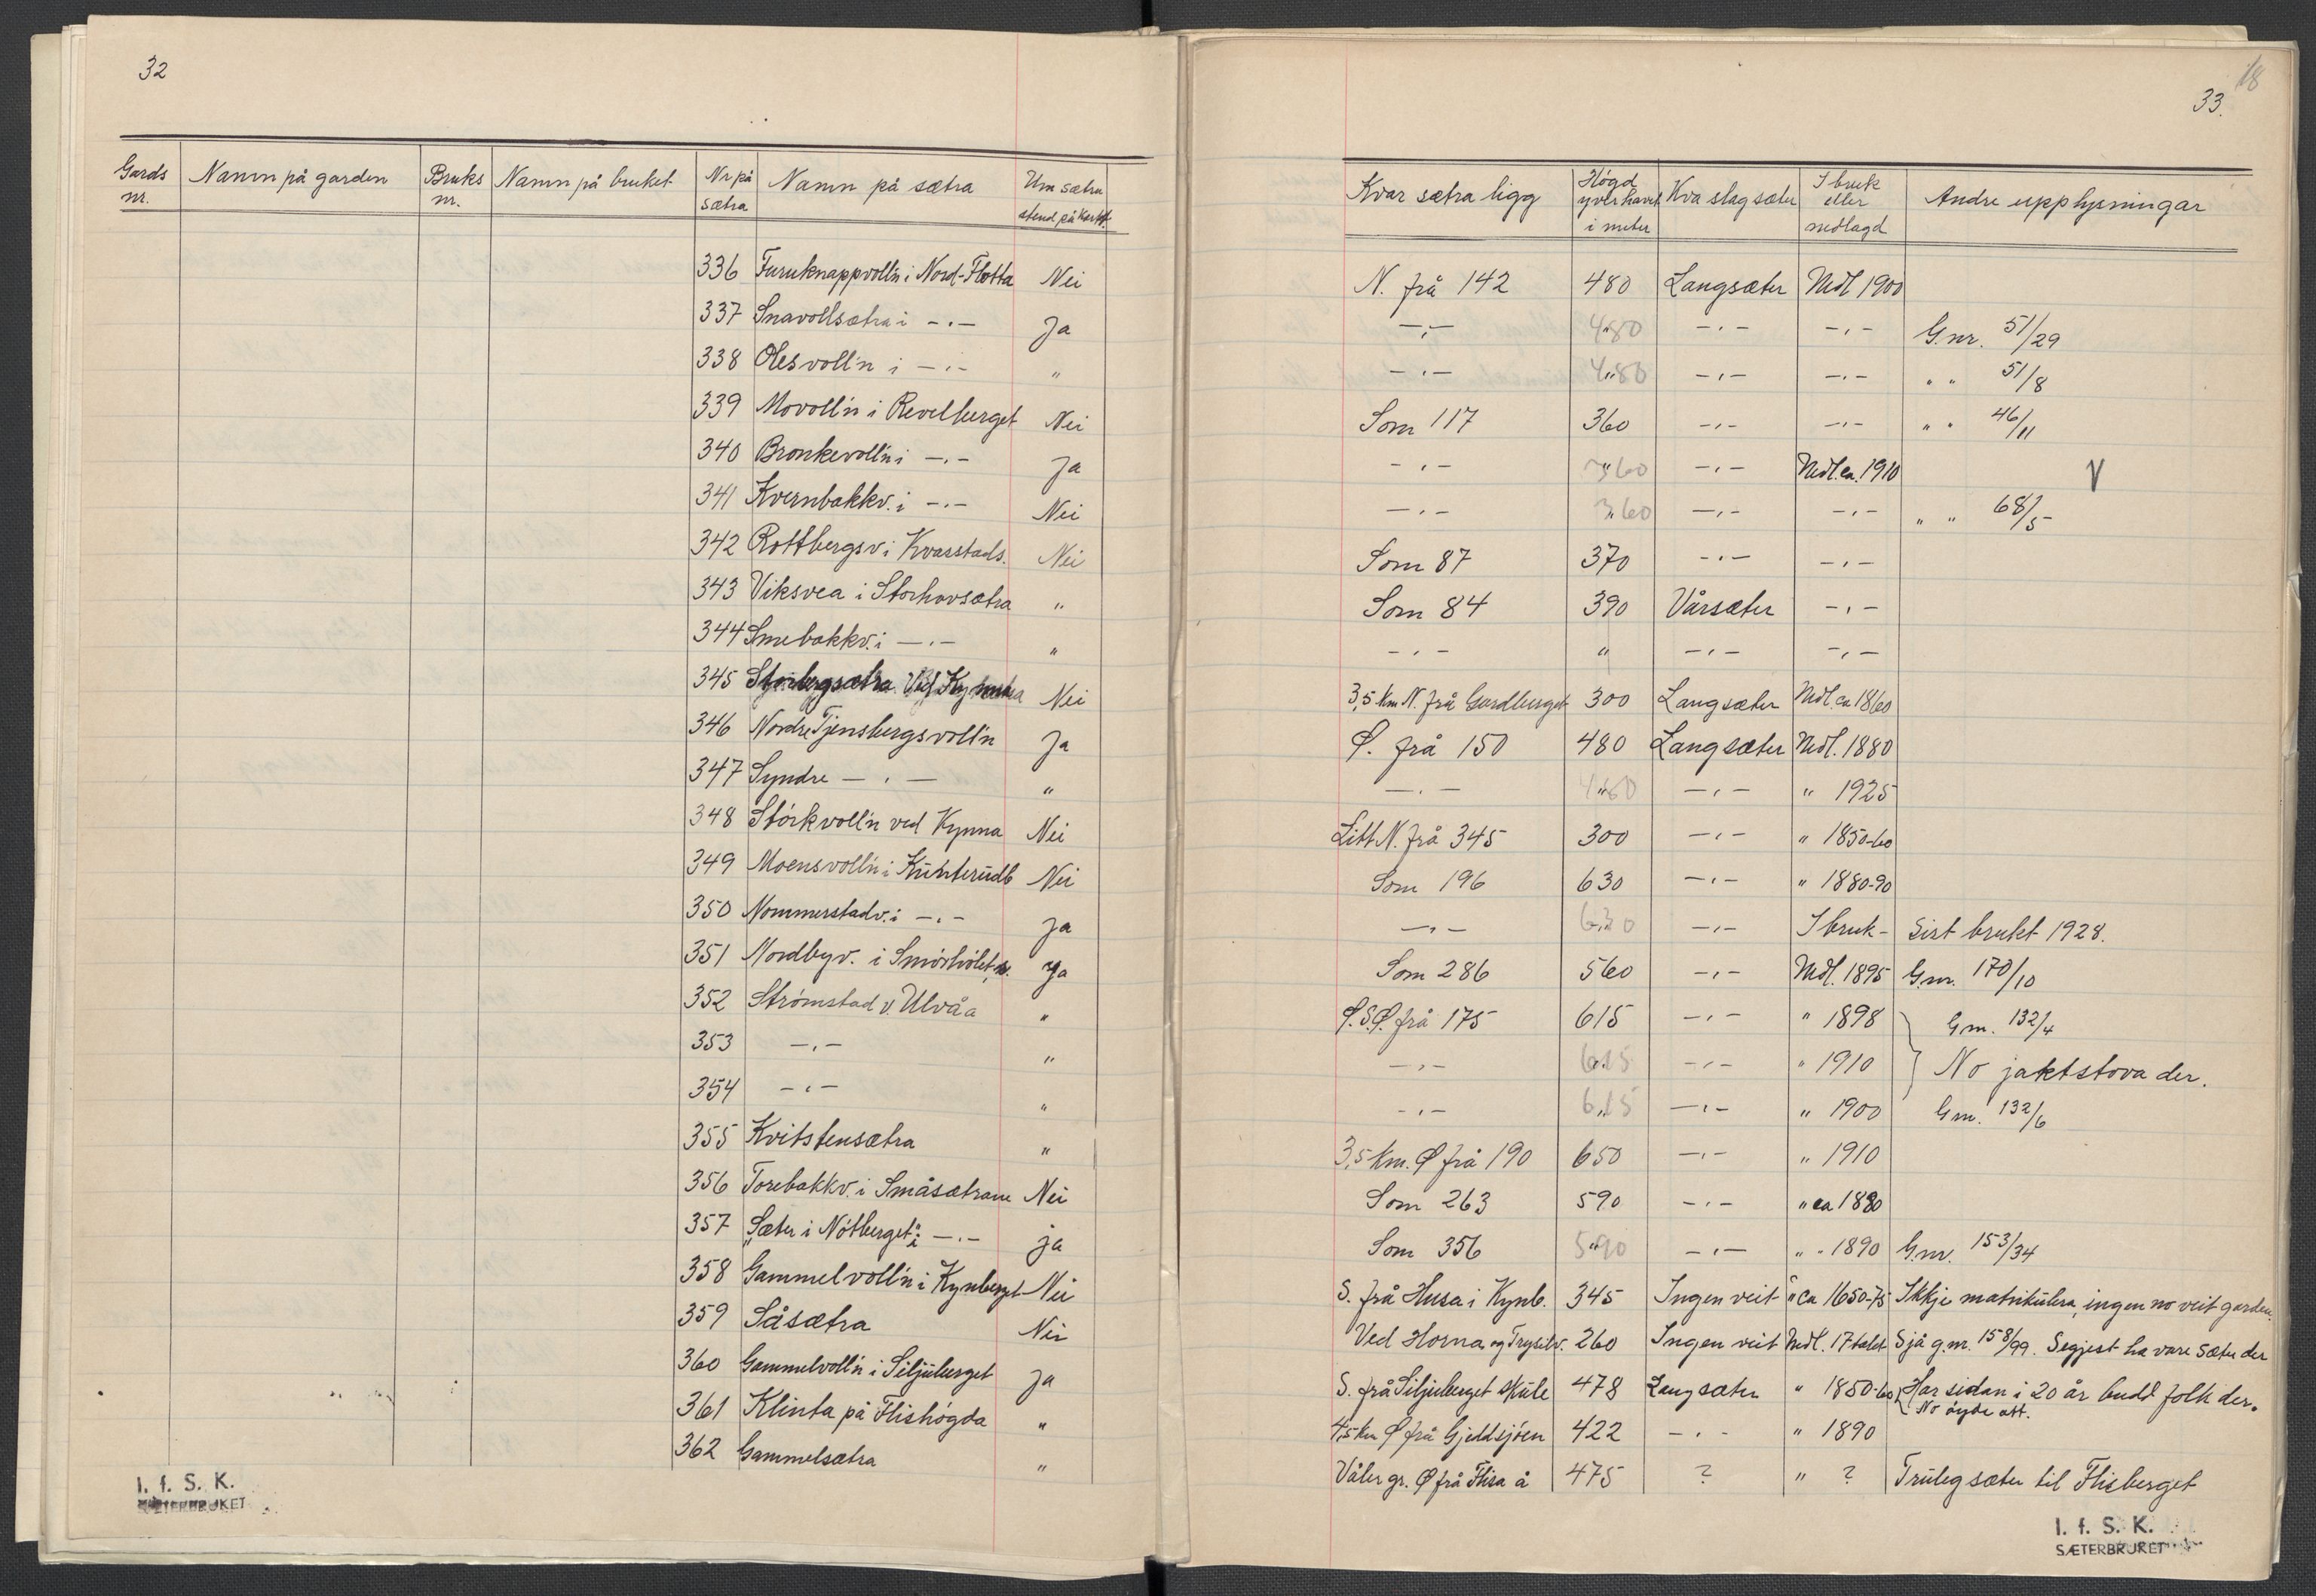 32
Gards nr. Namn på garden Bruks nr. Namn på bruket Nr på sætra Namn på sætra Um sætra stend på kartet.
336 Furuknappvoll'n i Nord-Flotta Nei
337 Snavollsætra i -.- Ja
338 Olesvoll'n i -.- "
339 Movoll'n i Revelberget Nei
340 Bronkevoll'n i -.- Ja
341 Kvernbakkv. i -.- Nei
342 Rottbergsv i Kvarstads. Nei
343 Viksvea i Storhovsætra "
344 Smebakkv. i -.- "
345 Storbergsætra Ved Kynna Nei
346 Nordre Tjensbergsvoll'n Ja
347 Syndre -.- "
348 Störkvoll'n ved Kynna Nei
349 Moensvoll'n i Künterüdb Nei
350 Nommerstadv. i -.- Ja
351 Nordbyv. i Smörhölet Ja
352 Strömstad v. Ulvåa "
353 -.- "
354 -.- "
355 Kvitstensætra "
356 Torebakkv. i Småsætrane Nei
357 "Sæter i Nötberget" i -.- ja
358 Gammelvoll'n i Kynberget Nei
359 Såsætra Nei
360 Gammelvoll'n i Siljüberget Ja
361 Klinta på Flishögda "
362 Gammelsætra "
I. f. S. K.
SÆTERBRUKET
18
33.
Kvar sætra ligg Högd yver havet i meter Kva slag sæter I bruk eller nedlagd Andre upplysningar
N. frå 142 480 Langsæter Nedl 1900
-.- 480 -.- -.- G.nr. 51/29
-.- 480 -.- -.- " " 51/8
Som 117 360 -.- -.- " " 46/11
-.- 360 -.- Nedl. ca. 1910 V
-.- 360 -.- -.- " " 68/5
Som 87 370 -.- -.-
Som 84 390 Vårsæter -.-
-.- " -.- -.-
3,5 km N. frå Gardberget 300 Langsæter Nedl. ca 1860
Ø. frå 150 480 Langsæter Nedl. 1880
-.- 480 -.- " 1925
Litt N. frå 345 300 -.- " 1850-60
Som 196 630 -.- " 1880-90
-.- 630 -.- I bruk - Sist brukt 1928.
Som 286 560 -.- Nedl. 1895 G.nr. 170/10
Ø.S.Ø. frå 175 615 -.- " 1898 G.nr. 132/4
-.- 615 -.- " 1910 No jaktstova der.
-.- 615 -.- " 1900 G.nr. 132/6
3,5 km. Ø frå 190 650 -.- " 1910
Som 263 590 -.- " ca 1880
Som 356 590 -.- " " 1890 G.nr. 153/34
S. frå Husa i Kynb. 345 Ingen veit " ca 1650-75 Ikkje matrikülera, ingen no veit garden.
Ved Horna og Trysilv. 260 Ingen veit Nedl. 17 talet Sjå g.nr. 158/99. Segjest ha vore sæter der
S. frå Siljuberget sküle 478 Langsæter " 1850-60 Har sidan i 20 år budd folk der.
No öyde att.
4,5 km Ø frå Gjeddsjöen 422 -.- " 1890
Våler gr. Ø frå Flisa å 475 ? " ? Trüleg sæter til Flisberget
I. f. S. K.
SÆTERBRUKET